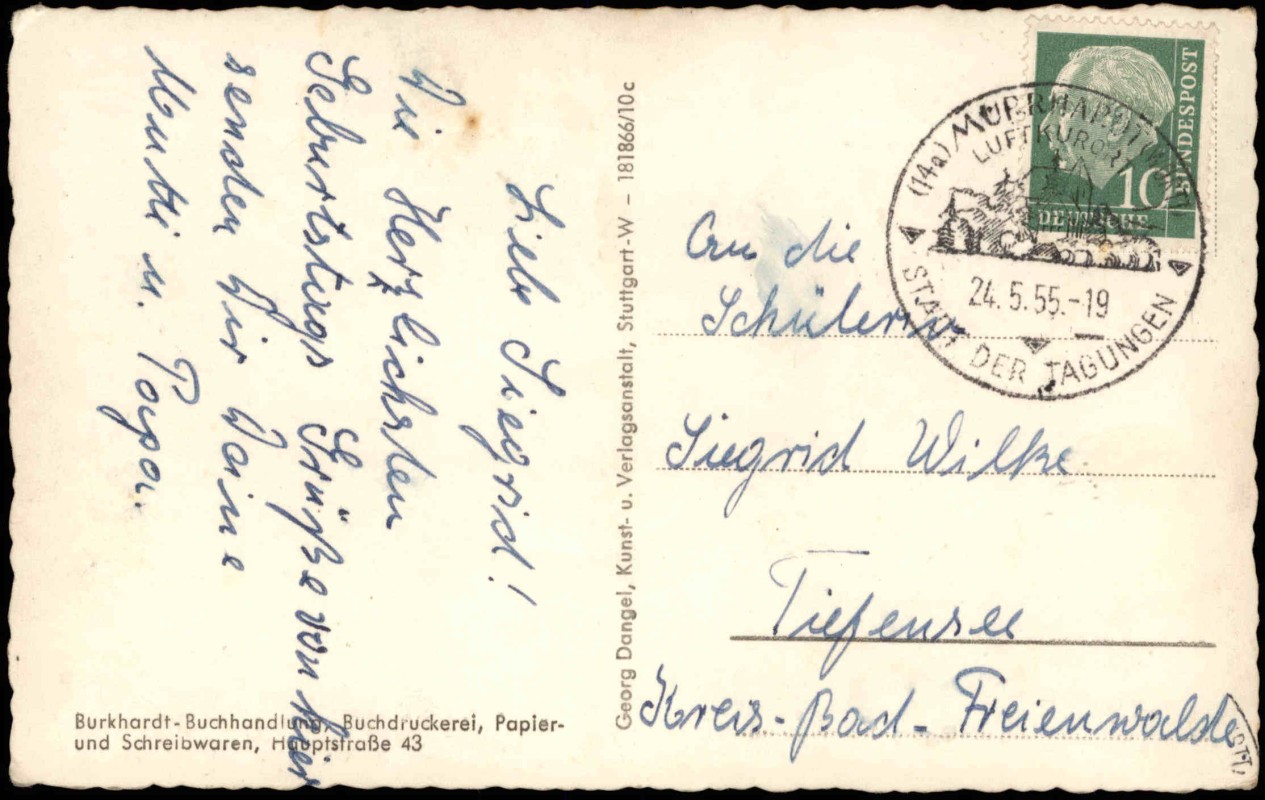 Liebe Siegrid!
Die Herzlichsten
Geburtstags Grüße von hier
senden Dir Deine
Mutti u. Papa.
Burkhardt-Buchhandlung, Buchdruckerei, Papier-
und Schreibwaren, Hauptstraße 43
Georg Dangel, Kunst- u. Verlagsanstalt, Stuttgart-W – 181866/10c
BUNDESPOST
10
DEUTSCHE
(14a) MURRHARDT (WÜRTT)
LUFTKURORT
24.5.55.-19
STADT DER TAGUNGEN
An die
Schülerin
Siegrid Wilke
Tiefensee
Kreis-Bad-Freienwalde